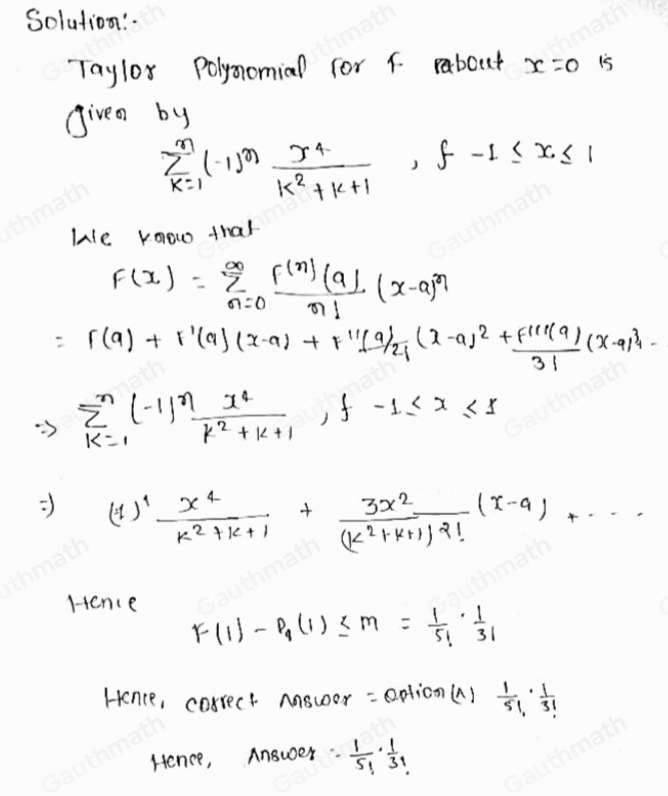 Solution:-
Taylor Polynomial for f about x=0 is
given by
n Σ k=1 (-1)^n x^4 / (k^2+k+1) , f -1 ≤ x ≤ 1
We know that
F(x) = ∞ Σ n=0 F^(n)(a) / n! (x-a)^n
= F(a) + F'(a)(x-a) + F''(a)/2! (x-a)^2 + F'''(a) / 3! (x-a)^3 -
=> n Σ k=1 (-1)^n x^4 / (k^2+k+1) , f -1 ≤ x ≤ 1
=) (-1)^1 x^4 / (k^2+k+1) + 3x^2 / ((k^2+k+1)2!) (x-a) + - - - -
Hence
F(1) - P_4(1) ≤ m = 1/5! · 1/3!
Hence, correct Answer = option (A) 1/5! · 1/3!
Hence, Answer = 1/5! · 1/3!
Gauthmath